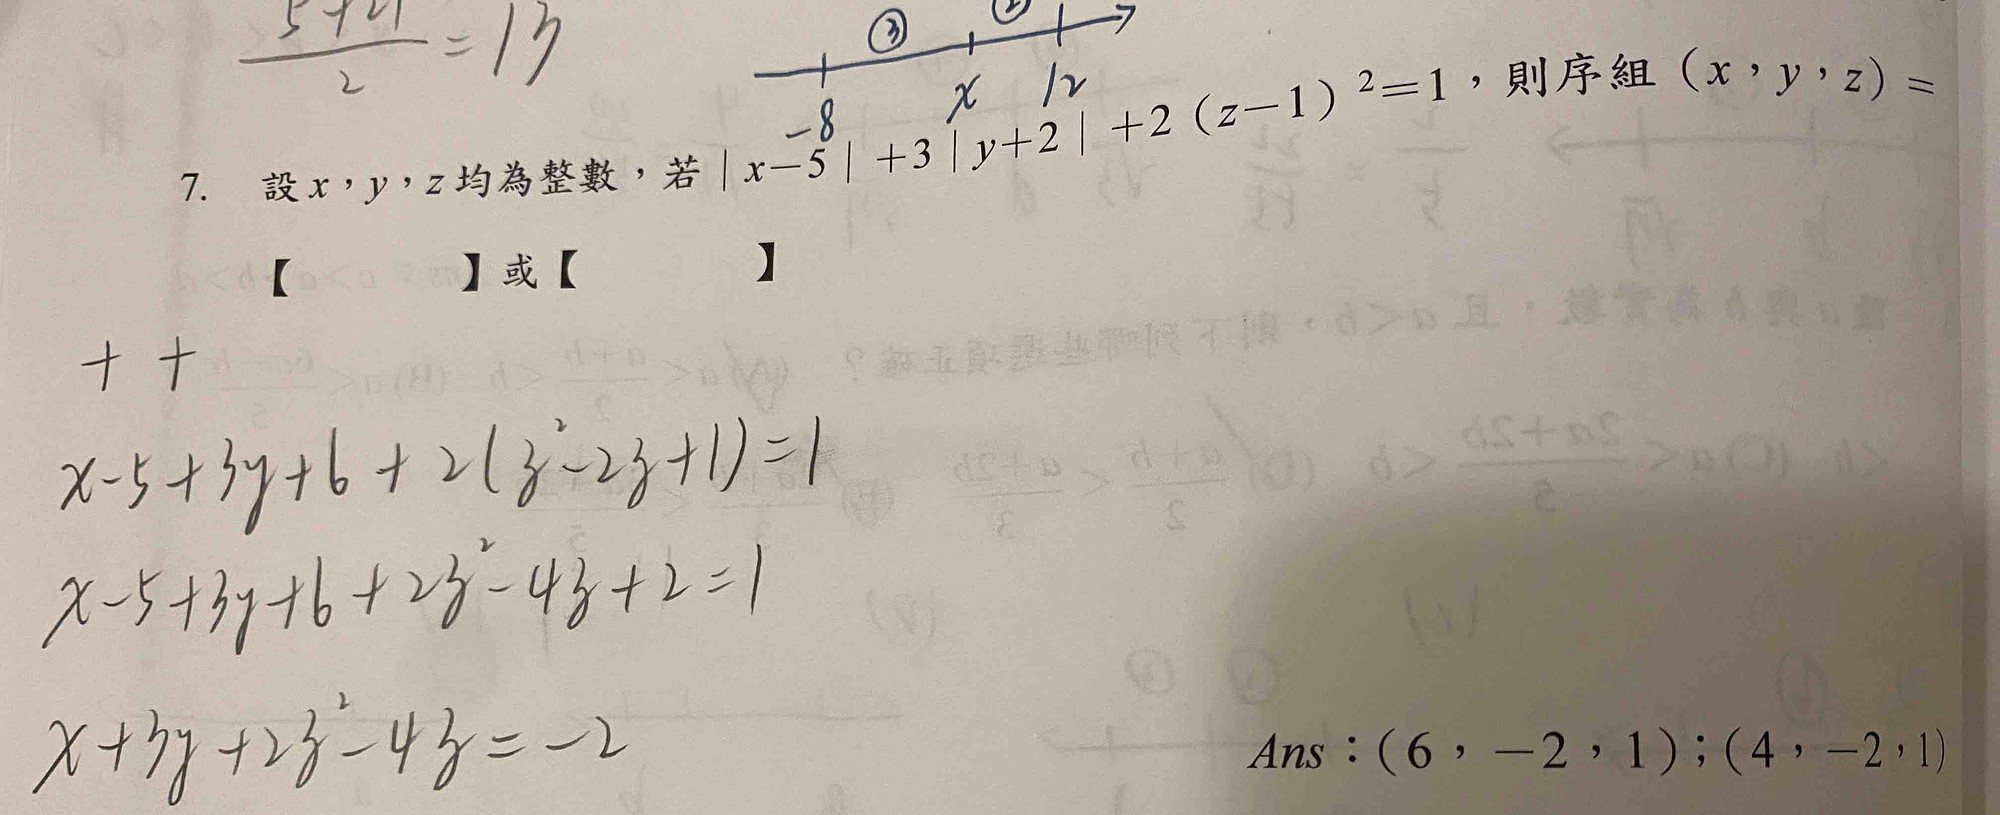 5+21
2
=13
③ ②
-8 x 12
7. 設x，y，z均為整數，若|x−5|+3|y+2|+2(z−1)²=1，則序組(x，y，z)=
【 】或【 】
+ +
x-5+3y+6+2(z²-2z+1)=1
x-5+3y+6+2z²-4z+2=1
x+3y+2z²-4z=-2
Ans：(6，−2，1)；(4，−2，1)